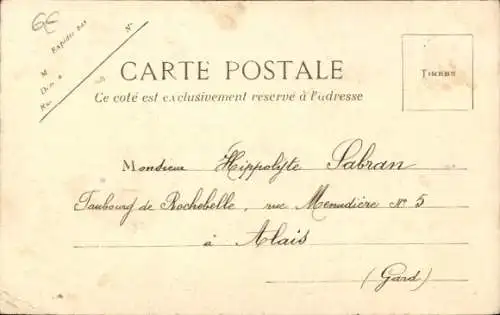 6€
Expédié par
N°
M
D
Rue
CARTE POSTALE
Ce coté est exclusivement reservé à l'adresse
TIMBRE
Monsieur Hippolyte Sabran
Faubourg de Rochebelle, rue Menudière N° 5
à Alais
(Gard)